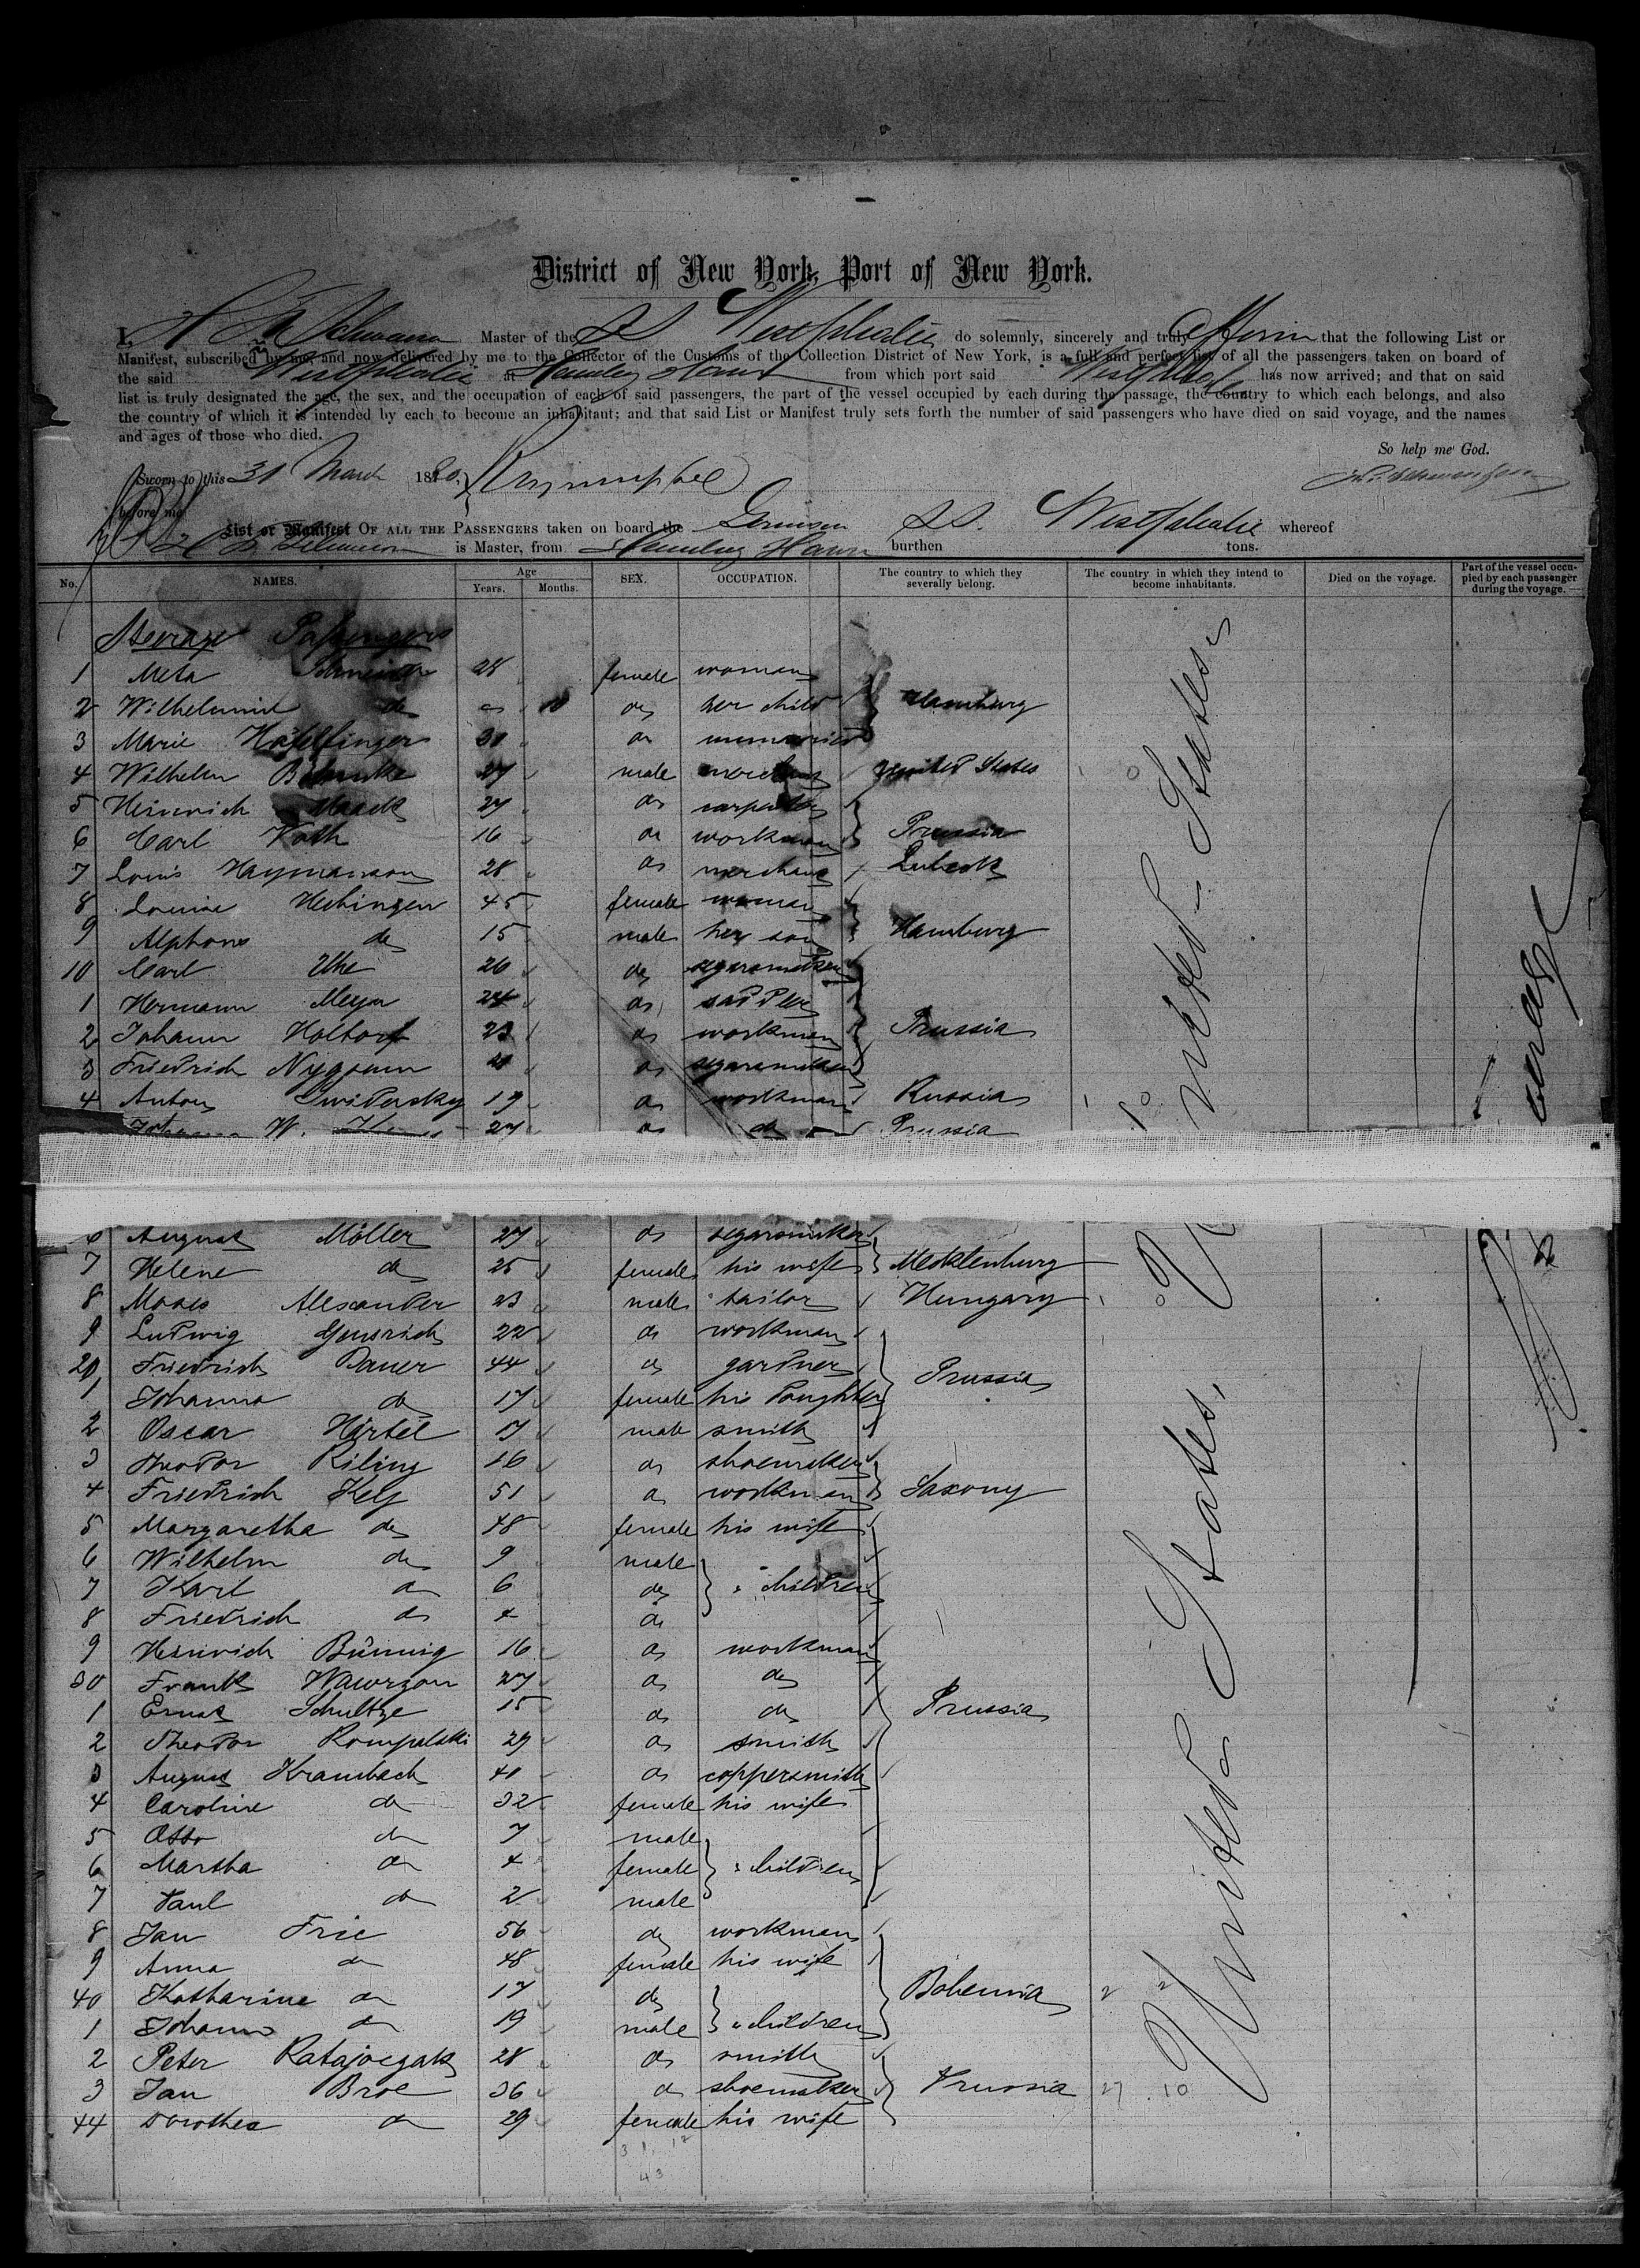 District of New York, Port of New York.
I, H Master of the SS Westphalia do solemnly, sincerely and truly affirm that the following List or
Manifest, subscribed by me, and now delivered by me to the Collector of the Customs of the Collection District of New York, is a full and perfect list of all the passengers taken on board of
the said Westphalia at Hamburg Havre from which port said Westphalia has now arrived; and that on said
list is truly designated the age, the sex, and the occupation of each of said passengers, the part of the vessel occupied by each during the passage, the country to which each belongs, and also
the country of which it is intended by each to become an inhabitant; and that said List or Manifest truly sets forth the number of said passengers who have died on said voyage, and the names
and ages of those who died.
So help me God.
Sworn to this 31 March 1880
before me
List or Manifest OF ALL THE PASSENGERS taken on board the German SS. Westphalia whereof
is Master, from Hamburg Havre burthen tons.
No. NAMES. Age Years. Months. SEX. OCCUPATION. The country to which they severally belong. The country in which they intend to become inhabitants. Died on the voyage. Part of the vessel occupied by each passenger during the voyage.
Steerage Passengers
1 Meta 28 female woman
2 Wilhelmine do do her child Hamburg
3 Marie Häfelfinger 30 do
4 Wilhelm 27 male United States
5 Heinrich Maack 27 do carpenter
6 Carl Voth 16 do workman Prussia
7 Louis Haymanson 28 do merchant Lubeck
8 Louise Hechinger 45 female woman
9 Alphons do 15 male her son Hamburg
10 Carl Uhe 26 do segarmaker
1 Hermann Meyer 24 do saddler
2 Johann Holtorf 23 do workman Prussia
3 Friedrich do segarmaker
4 Anton Swidersky 19 do workman Russia
Johann W. 27 do do Prussia
6 August Möller 27 do segarmaker
7 Helene do 25 female his wife Mecklenburg
8 Moses Alexander 23 male tailor Hungary
9 Ludwig 22 do workman
20 Friedrich Bauer 44 do gardner Prussia
1 Johanna do 17 female his daughter
2 Oscar Härtel 17 male smith
3 Theodor Riling 16 do shoemaker
4 Friedrich 51 do workman Saxony
5 Margaretha do 48 female his wife
6 Wilhelm do 9 male
7 Karl do 6 do " children
8 Friedrich do 4 do
9 Heinrich Bünnig 16 do workman
30 Frank Wawrzon 27 do do
1 Ernst Schultze 15 do do Prussia
2 Theodor Rompalski 29 do smith
3 August Krambach 40 do coppersmith
4 Caroline do 32 female his wife
5 Otto do 7 male
6 Martha do 4 female " children
7 Paul do 2 male
8 Jan Fric 56 do workman
9 Anna do 48 female his wife
40 Katharine do 17 do Bohemia
1 Johann do 19 male " children
2 Peter Ratajoczak 28 do smith
3 Jan Broe 36 do shoemaker Prussia
44 Dorothea do 29 female his wife
United States
United States